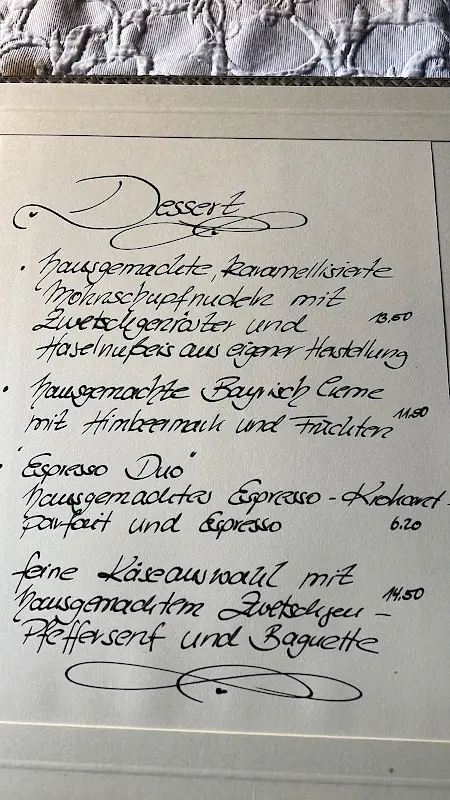 Dessert
• hausgemachte, karamellisierte
Mohnschupfnudeln mit
Zwetschgenröster und 13.60
Haselnußeis aus eigener Herstellung
• hausgemachte Bayrisch Creme
mit Himbeermark und Früchten 11.80
• "Espresso Duo"
hausgemachtes Espresso-Krokant-
parfait und Espresso 6.20
feine Käseauswahl mit
hausgemachtem Zwetschgen- 14.50
Pfeffersenf und Baguette